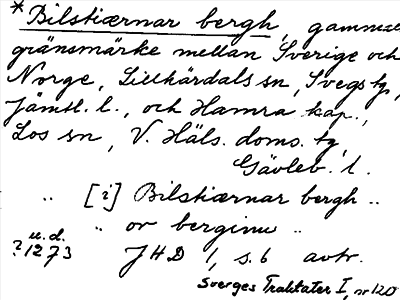 *Bilstiærnar bergh, gammalt
gränsmärke mellan Sverige och
Norge, Lillhärdals sn, Svegs tg,
Jämtl. l., och Hamra kap.,
Los sn, V. Häls. doms. tg,
Gävleb. l.
" [i] Bilstiærnar bergh "
" or berginu "
u. d.
? 1273 JHD 1, s. 6 avtr.
Sverges Traktater I, nr 120